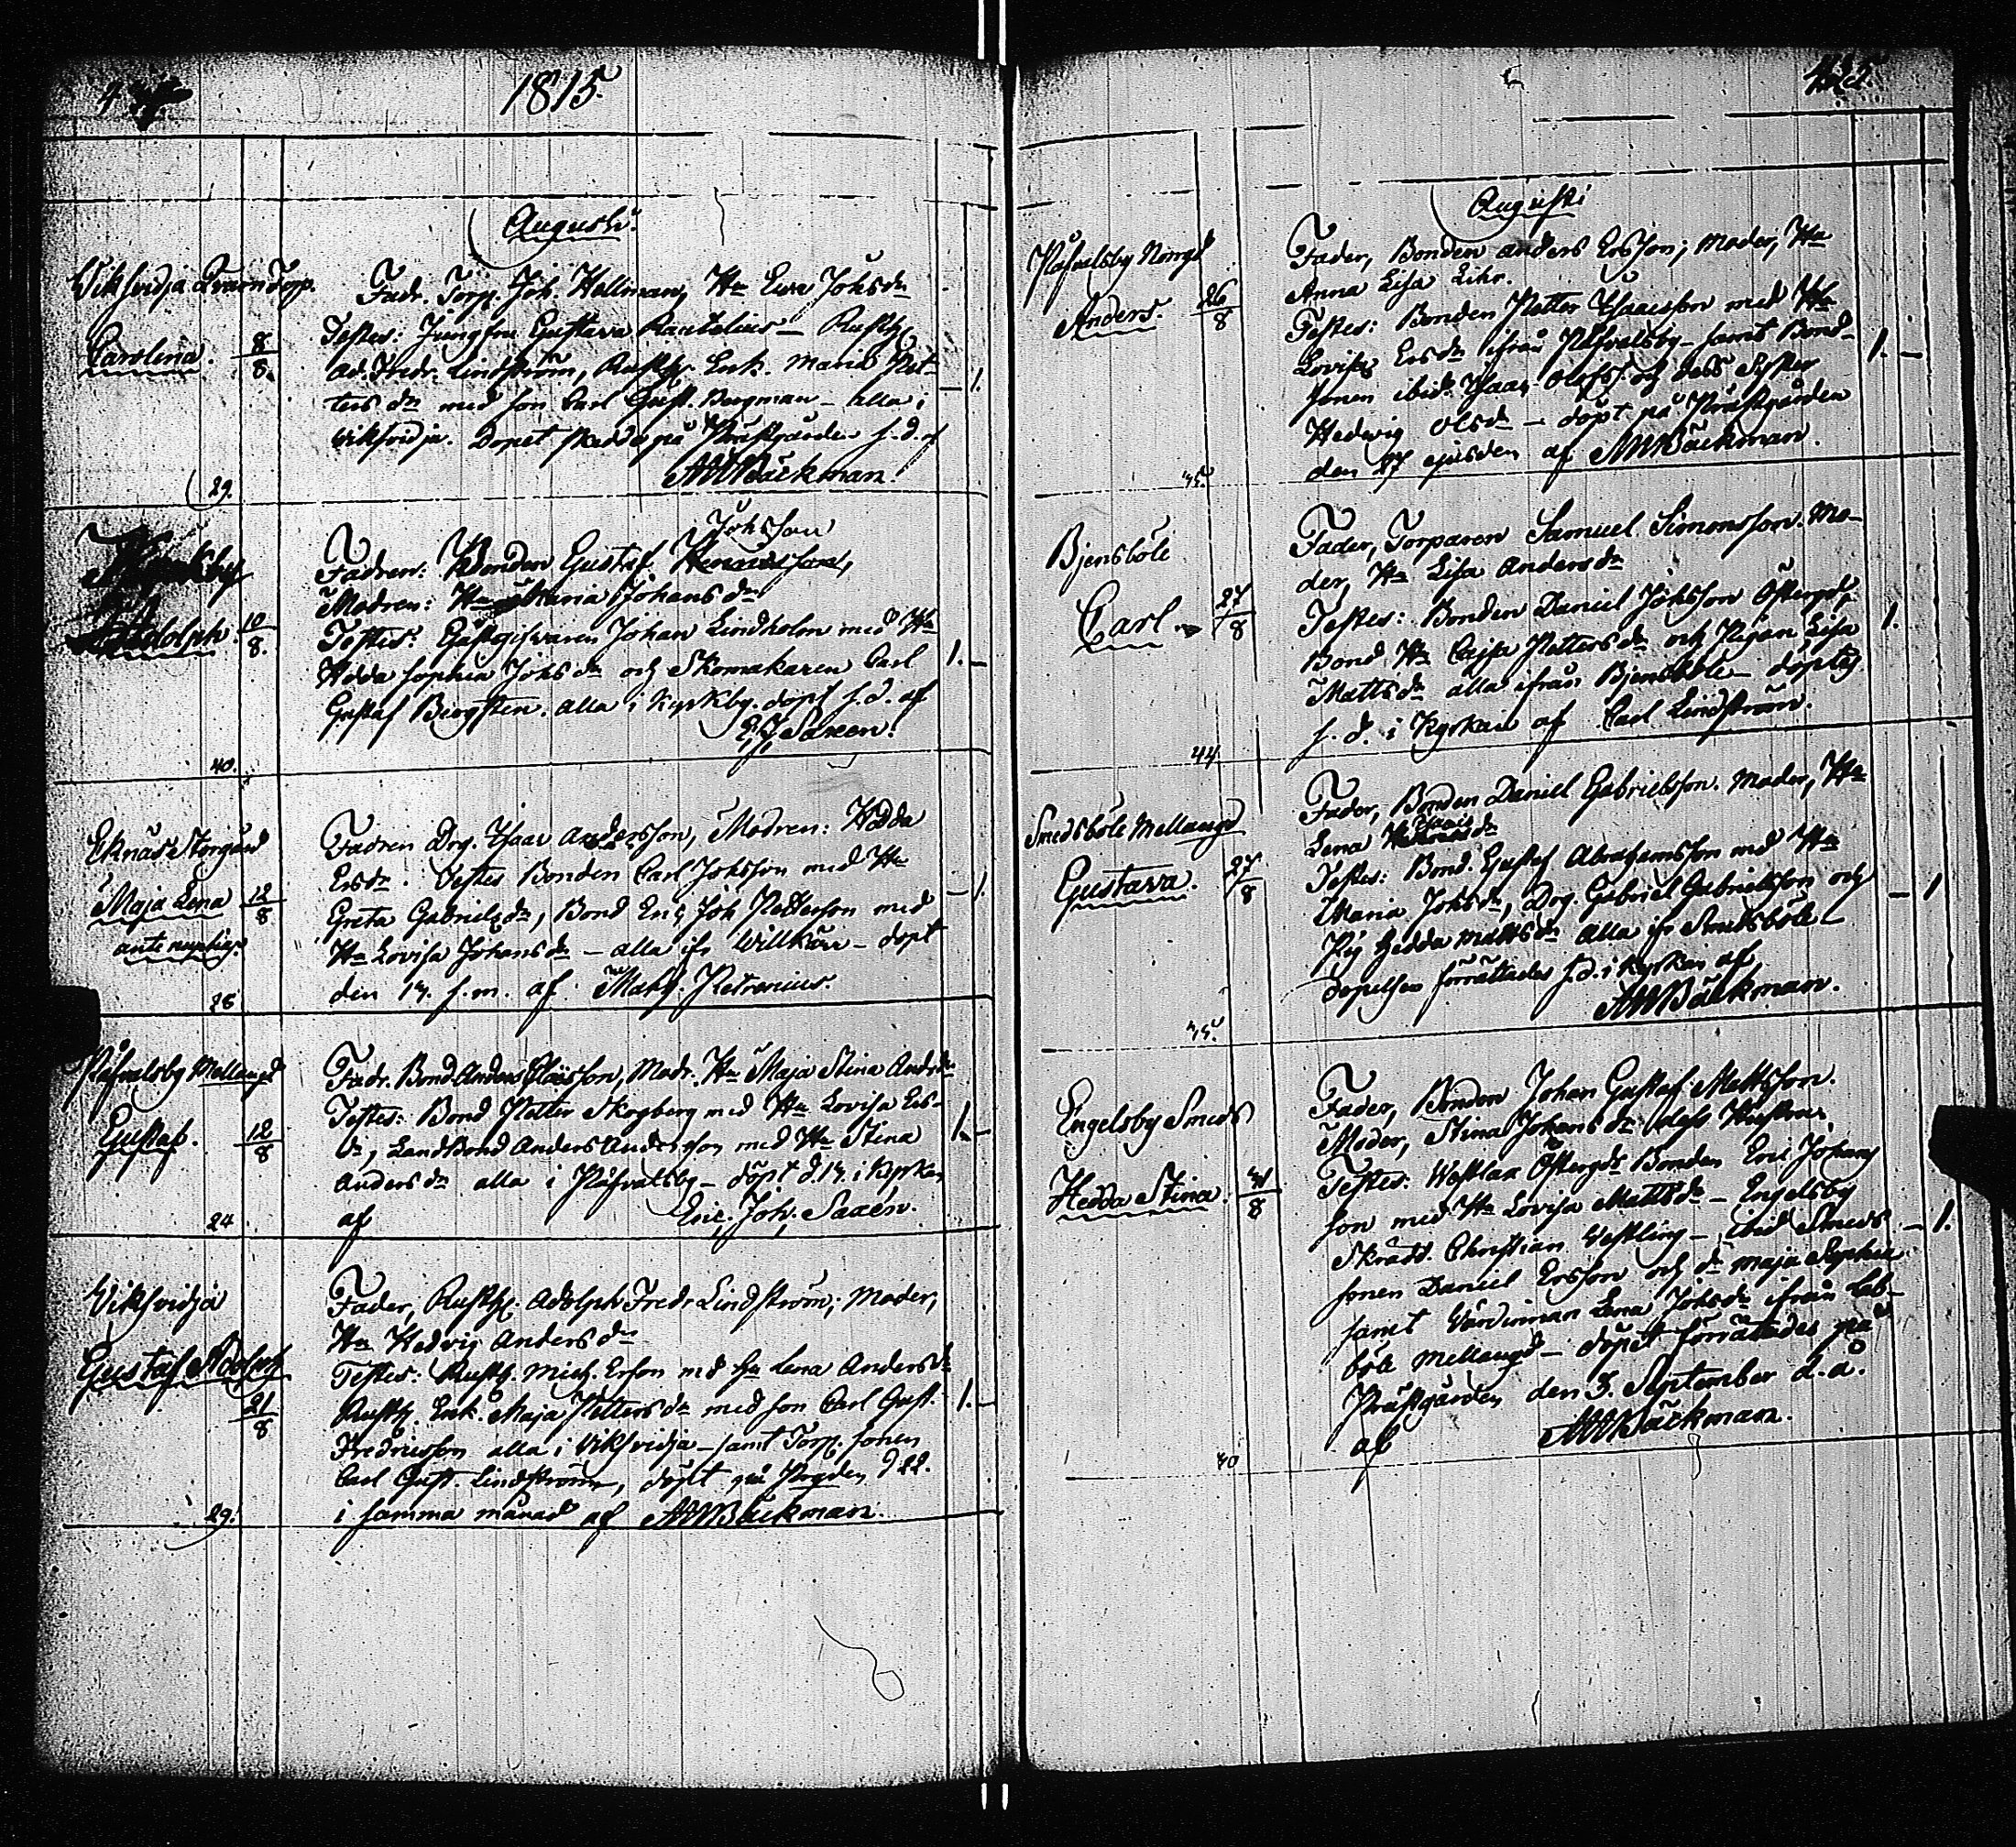 1815.
Augusti.
Viksvidja Qvarn Torp.
Carolina. 8/8.
Fadr. Torp. Joh. Hellman, Hu Eva Johsdr
Testes: Jungfru Gustava Rautelius – Rusth.
Ad. Fredr. Lindström, Rusth. Enk. Maria Pet-
ters dr med son Carl Gust. Bergman – alla i
Viksvidja. Dopet skedde på Prästgården s. d. af
AWBäckman.
1.
29.
Adolph. 10/8.
Johsson
Fadren: Bonden Gustaf
Modren: Hu Maria Johans dr
Testes: Gästgifvaren Johan Lindholm med Hu
Hedda Sophia Johs dr och Skomakaren Carl
Gustaf Bergsten. alla i Kyrkby. döpt s. d. af
E. J. Saxeen.
1. –
40.
Eknäs Storgård
Maja Lena 12/8
ante nuptias.
Fadren Drg. Isaac Andersson, Modren: Hedda
Ersdr. Testes Bonden Carl Johsson med Hu
Greta Gabrielsdr, Bond Eric Joh Petterson med
Hu Lovisa Johansdr – alla ifr Willkärr – döpt
den 13. s. m. af Math. Petrenius.
– 1.
26
Påfvalsby Mellangd
Gustaf. 12/8
Fadr. Bond Anders Claësson, Modr. Hu Maja Stina Andsdr
Testes: Bond Petter Skogberg med Hu Lovisa Ers-
dr, Landbond Anders Andersson med Hu Stina
Anders dr alla i Påfvalsby – döpt d. 13. i Kyrkan
af Eric. Joh. Saxén.
1. –
24
Viksvidja
Gustaf Adolph
21/8
Fader, Rusth. Adolph Fredr Lindström; Moder,
Hu Hedvig Anders dr
Testes: Rusth. Mich. Erson med Hu Lena Anders dr
Rusth. Enk. Maja Petters dr med son Carl Gust.
Fredricsson alla i Viksvidja – samt Torp. sonen
Carl Gust. Lindström, döpt på Prgden d 22.
i samma månad af AWBäckman.
1. –
29.
425.
Augusti
Påfvalsby Norrgd
Anders. 26/8
Fader, Bonden Anders Ersson; Moder, Hu
Anna Lisa Lihr.
Testes: Bonden Petter Isaacsson med Hu
Lovisa Ersdr ifrån Påfvalsby – samt Bond-
sonen ibid. Isaac Olofss. och dess Syster
Hedwig Olsdr – döpt på Prästgården
den 27 ejusdem af AWBäckman.
1. –
35.
Bjensböle
Carl. 27/8
Fader, Torparen Samuel Simonsson. Mo-
der, Hu Lisa Andersdr
Testes: Bonden Daniel Johsson Östergd,
Bond Hu Caisa Petters dr och Pigan Lisa
Matts dr alla ifrån Bjensböle – döptes
s. d. i Kyrkan af Carl Lindström.
1.
44
Smedsböle Mellangd
Gustava. 27/8
Fader, Bonden Daniel Gabrielsson. Moder, Hu
Lena
Testes: Bond. Gustaf Abrahamsson med Hu
Maria Johsdr, Drg. Gabriel Gabrielsson och
Pig Hedda Mattsdr alla ifr Smedsböle –
döpelsen förrättades s. d. i Kyrkan af
AWBäckman.
– 1
35.
Engelsby Smeds
Hedda Stina. 31/8
Fader, Bonden Johan Gustaf Mattsson.
Moder, Stina Johans dr dess Hustru.
Testes: Westlax Östergds Bonden Eric Johans
son med Hu Lovisa Mattsdr – Engelsby
Skrädd. Christian Westling – ibid Smeds
sonen Daniel Ersson och dr Maja Sophia
samt Värdinnan Lena Johsdr ifrån Lab-
böle Mellangd – döpet förrättades på
Prästgården den 3. September d. å.
af AWBäckman.
– 1.
30